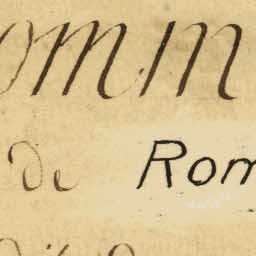 omm
de Rom